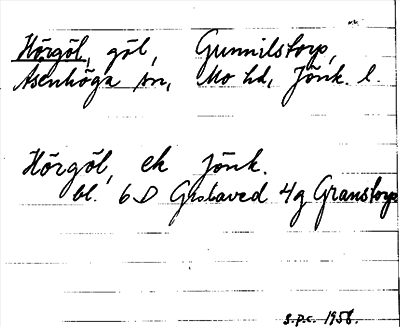 Hörgöl, göl, Gunnilstorp,
Åsenhöga sn, Mo hd, Jönk. l.
Hörgöl, ek Jönk.
bl. 6D Gislaved 4g Granstorp
s.p.c. 1958.